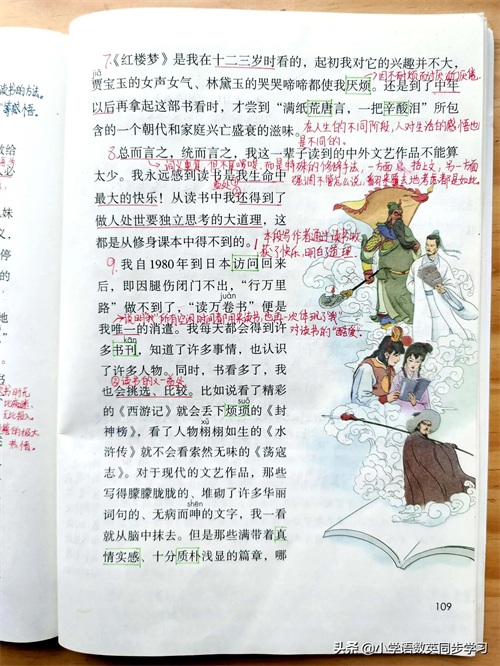 7.《红楼梦》是我在十二三岁时看的，起初我对它的兴趣并不大，
jiǎ
贾宝玉的女声女气、林黛玉的哭哭啼啼都使我厌烦。还是到了中年
以后再拿起这部书看时，才尝到“满纸荒唐言，一把辛酸泪”所包
含的一个朝代和家庭兴亡盛衰的滋味。
在人生的不同阶段，人对生活的感悟也
是不同的。
8.总而言之，统而言之，我这一辈子读到的中外文艺作品不能算
太少。我永远感到读书是我生命中
最大的快乐！从读书中我还得到了
做人处世要独立思考的大道理，这
都是从修身课本中得不到的。
本段写作者通过读书收
获了快乐，明白了道理
9.我自1980年到日本访问回来
后，即因腿伤闭门不出，“行万里
juàn
路”做不到了，“读万卷书”便是
我唯一的消遣。我每天都会得到许
对读书的“酷爱。
kān
多书刊，知道了许多事情，也认识
了许多人物。同时，书看多了，我
②读书的又一好处
也会挑选、比较。比如说看了精彩
suǒ
的《西游记》就会丢下烦琐的《封
xǔ
神榜》，看了人物栩栩如生的《水
浒传》就不会看索然无味的《荡寇
志》。对于现代的文艺作品，那些
写得朦朦胧胧的、堆砌了许多华丽
shēn
词句的、无病而呻的文字，我一看
就从脑中抹去。但是那些满带着真
情实感、十分质朴浅显的篇章，哪
109
头条 @小学语数英同步学习